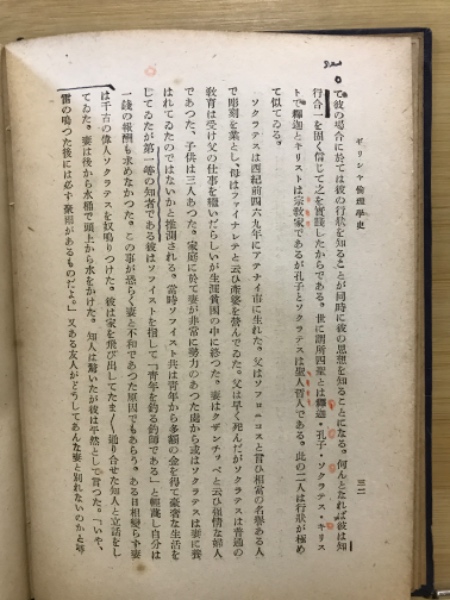 ギリシャ倫理學史
三二
て彼の場合に於ては彼の行狀を知ることが同時に彼の思想を知ることになる。何んとなれば彼は知
行合一を固く信じて之を實踐したからである。世に謂所四聖とは釋迦・孔子・ソクラテス・キリス
トで、釋迦とキリストは宗敎家であるが孔子とソクラテスは聖人哲人である。此の二人は行狀が極め
て似てゐる。
ソクラテスは西紀前四六九年にアテナイ市に生れた。父はソフロニコスと言ひ相當の名譽ある人
で彫刻を業とし、母はファイナレテと云ひ產婆を營んでゐた。父は早く死んだがソクラテスは普通の
敎育は受け父の仕事を繼いだらしいが生涯貧困の中に終つた。妻はクザンチッペと云ひ强情な婦人
であつた、子供は三人あつた。家庭に於て妻が非常に勢力のあつた處から或はソクラテスは妻に養
はれてゐたのではないかと推測される。當時ソフィスト共は靑年から多額の金を得て豪奢な生活を
してゐたが第一等の知者である彼はソフィストを指して『靑年を釣る釣師である』と輕蔑し自分は
一錢の報酬も求めなかつた。この事が恐らく妻と不和であつた原因でもあらう。ある日相變らず妻
は千古の偉人ソクラテスを奴鳴りつけた。彼は家を飛び出してたま〱通り合せた知人と立話をし
てゐた。妻は後から水桶で頭上から水をかけた。知人は驚いたが彼は平然として言つた。「いや、
雷の鳴つた後には必ず豪雨があるものだよ。」又ある友人がどうしてあんな妻と別れないのかと